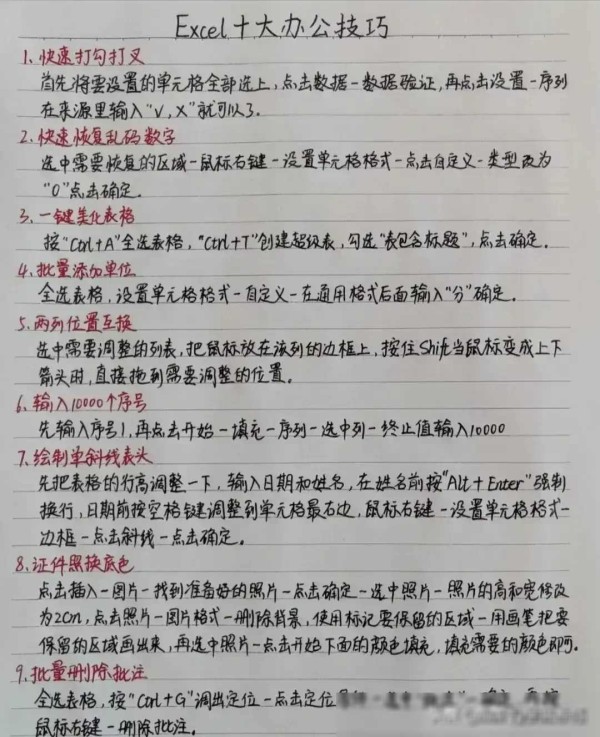 Excel十大办公技巧
1、快速打勾打叉
首先将需要设置的单元格全部选上，点击数据-数据验证，再点击设置-序列
在来源里输入"V，X"就可以了.
2、快速恢复乱码数字
选中需要恢复的区域-鼠标右键-设置单元格格式-点击自定义-类型改为
"0"点击确定.
3、一键美化表格
按"Ctrl+A"全选表格，"Ctrl+T"创建超级表，勾选"表包含标题"，点击确定.
4、批量添加单位
全选表格，设置单元格格式-自定义-在通用格式后面输入"分"确定.
5、两列位置互换
选中需调整的列表，把鼠标放在该列的边框上，按住Shift当鼠标变成上下
箭头时，直接拖到需要调整的位置。
6、输入10000个序号
先输入序号1，再点击开始-填充-序列-选中列-终止值输入10000
7、绘制单斜线表头
先把表格的行高调整一下，输入日期和姓名，在姓名前按"Alt+Enter"强制
换行，日期前按空格键调整到单元格最右边，鼠标右键-设置单元格格式-
边框-点击斜线-点击确定.
8、证件照换底色
点击插入-图片-找到准备好的照片-点击确定-选中照片-照片的高和宽修改
为20cn，点击照片-图片格式-删除背景，使用标记要保留的区域-用画笔把要
保留的区域画出来，再选中照片-点击开始下面的颜色填充，填充需要的颜色即可.
9、批量删除批注
全选表格，按"Ctrl+G"调出定位-点击定位
鼠标右键-删除批注.